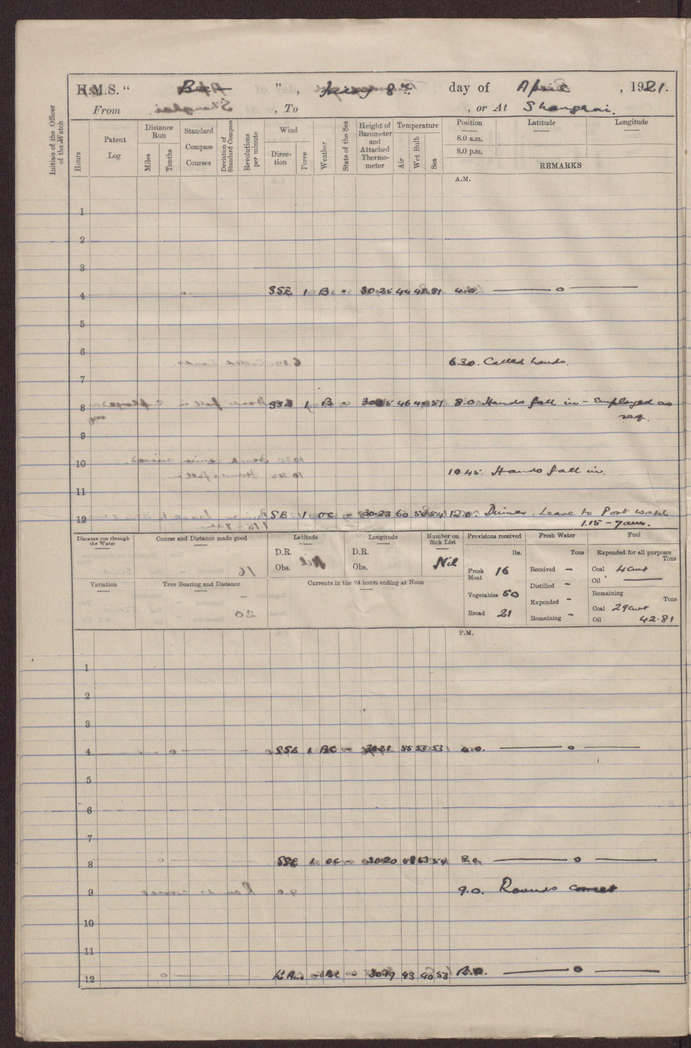 H.M.S. " ", 8th day of April, 1921.
From , To , or At Shanghai.
Initials of the Officer of the Watch
Hours
Patent Log
Distance Run
Miles
Tenths
Standard Compass Courses
Deviation of Standard Compass
Revolutions per minute
Wind
Direction
Force
Weather
State of the Sea
Height of Barometer and Attached Thermometer
Temperature
Air
Wet Bulb
Sea
Position
8.0 a.m.
8.0 p.m.
Latitude
Longitude
REMARKS
A.M.
1
2
3
4 SSE 1 B 4.0. — o —
5
6
6.30. Called hands.
7
8 1 B 8.0. Hands fall in – Employed as req.
9
10
10.45. Hands fall in.
11
12 SE 1 30.23 60 12.0. Dinner. Leave to Port watch
1.15 – 7 a.m.
Distance run through the Water
Course and Distance made good
Latitude
D.R.
Obs. Nil
Longitude
D.R.
Obs.
Number on Sick List
Nil
Provisions received
lbs.
Fresh Meat 16
Vegetables 50
Bread 21
Fresh Water
Tons
Received –
Distilled –
Expended –
Remaining –
Fuel
Expended for all purposes
Tons
Coal 4 cwt
Oil —
Remaining
Tons
Coal 29 cwt
Oil 42.81
Variation
True Bearing and Distance
Currents in the 24 hours ending at Noon
P.M.
1
2
3
4 SSE 1 BC 53 4.0. — o —
5
6
7
8 SSE 30.20 — o —
9 9.0. Rounds correct
10
11
12 — o —